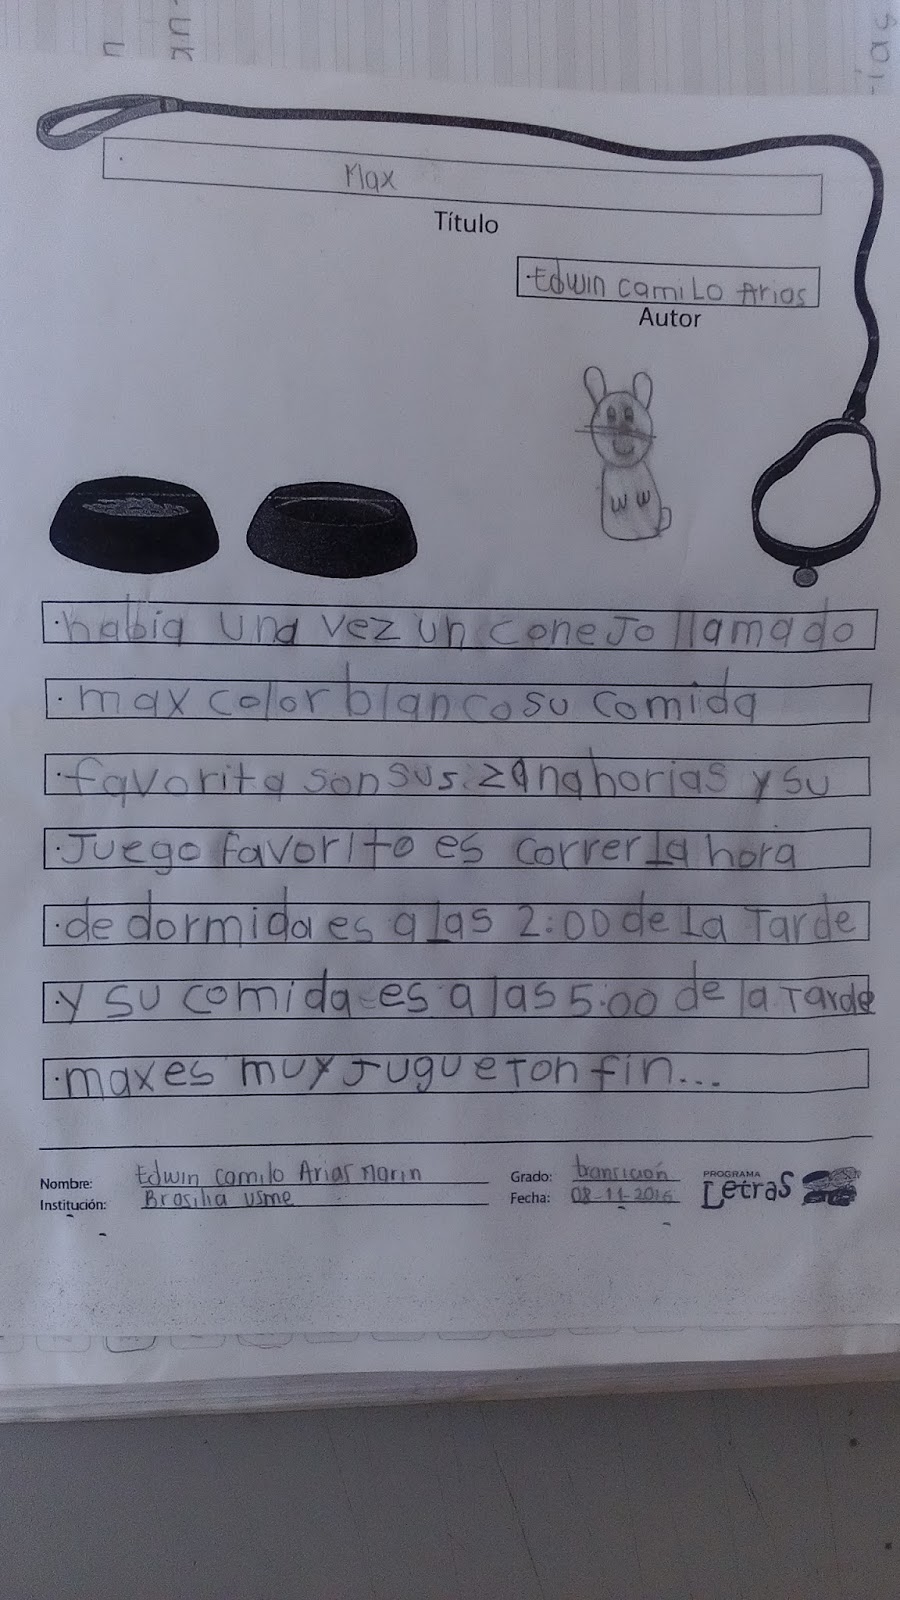 Max
Título
Edwin camiLo Arias
Autor
habia una vez un conejo llamado
max color blanco su comida
favorita son sus zanahorias y su
Juego favorito es correr la hora
de dormida es a las 2:00 de La Tarde
y su comida es a las 5:00 de la Tarde
max es muy Jugueton fin...
Nombre: Edwin camilo Arias Marin Grado: transición
Institución: Brasilia usme Fecha: 08-11-2016
PROGRAMA
Letras